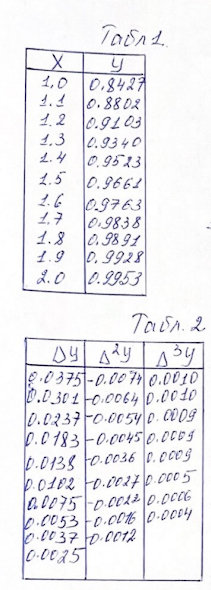 Табл 1.
X y
1.0 0.8427
1.1 0.8802
1.2 0.9103
1.3 0.9340
1.4 0.9523
1.5 0.9661
1.6 0.9763
1.7 0.9838
1.8 0.9891
1.9 0.9928
2.0 0.9953
Табл. 2
Δy Δ²y Δ³y
0.0375 -0.0074 0.0010
0.0301 -0.0064 0.0010
0.0237 -0.0054 0.0009
0.0183 -0.0045 0.0009
0.0138 -0.0036 0.0009
0.0102 -0.0027 0.0005
0.0075 -0.0022 0.0006
0.0053 -0.0016 0.0004
0.0037 -0.0012
0.0025